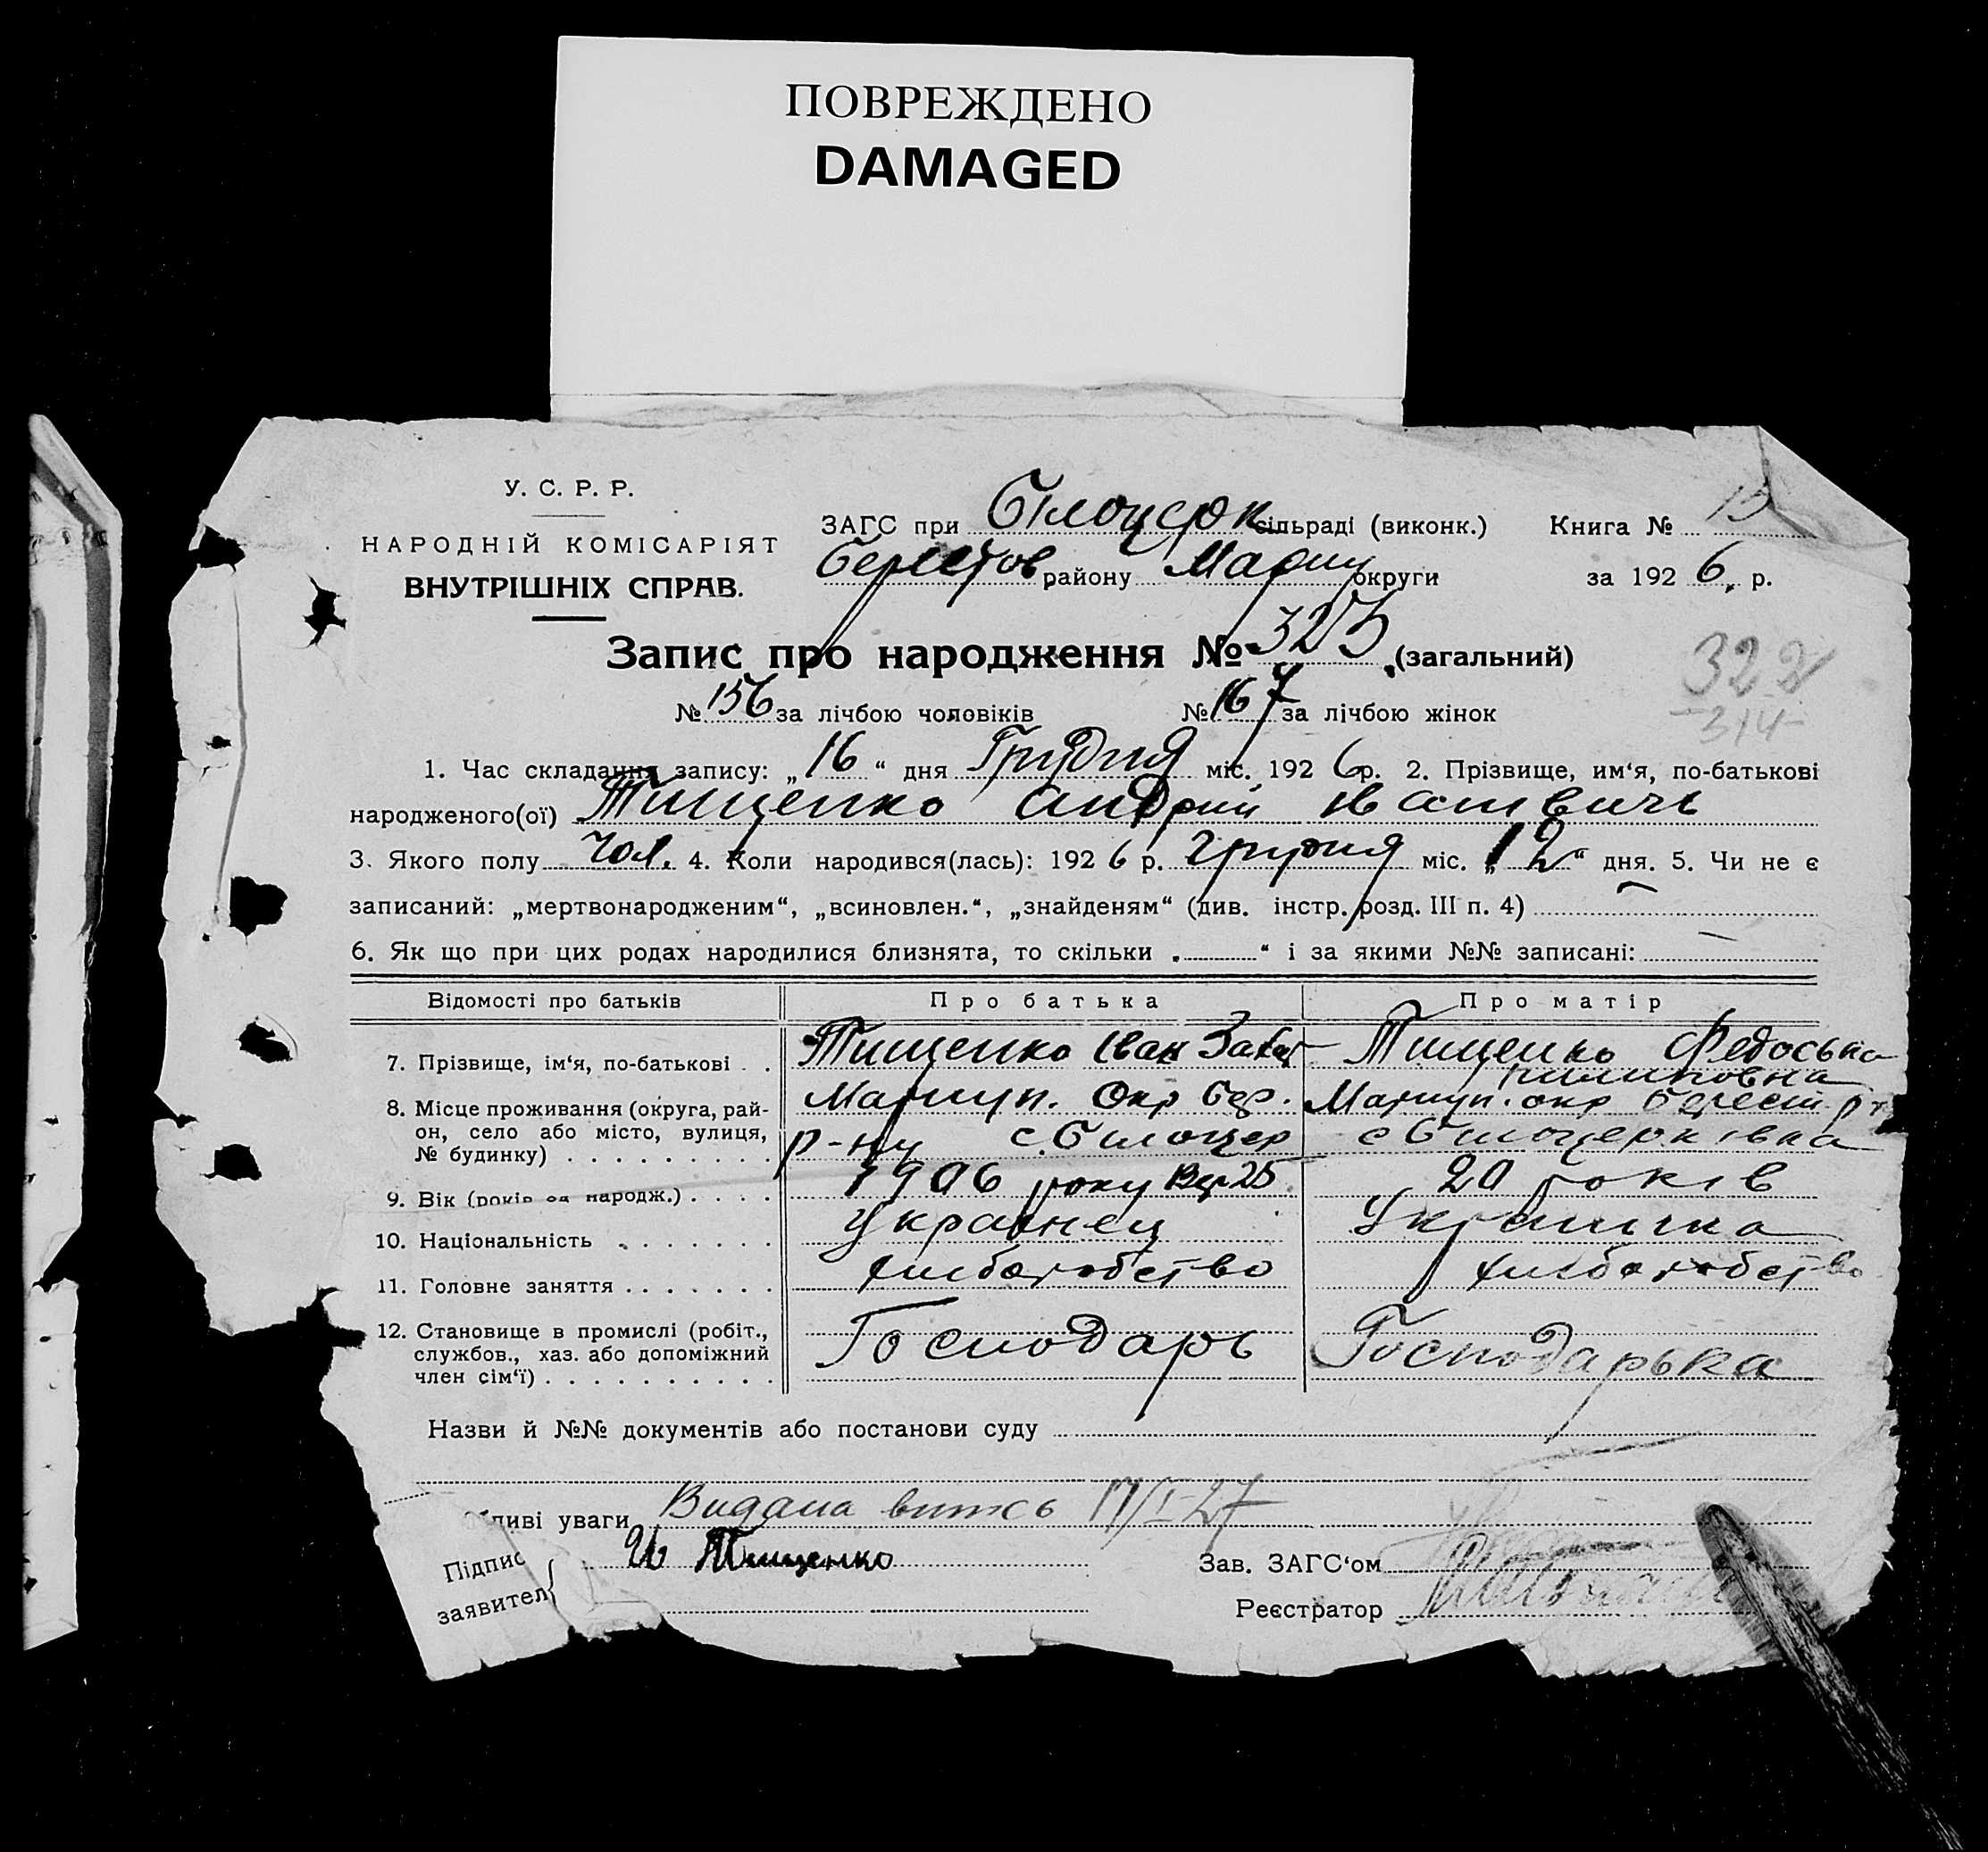 ПОВРЕЖДЕНО
DAMAGED
У. С. Р. Р.
НАРОДНІЙ КОМІСАРІЯТ
ВНУТРІШНІХ СПРАВ.
ЗАГС при Білоцерк сільраді (виконк.) Книга № 15
Берестов району Мариу округи за 1926 р.
Запис про народження № 323 (загальний)
322
№ 156 за лічбою чоловіків № 167 за лічбою жінок
314
1. Час складання запису: „16“ дня Грудня міс. 1926 р. 2. Прізвище, им‘я, по-батькові
народженого(ої) Тищенко Андрий Иванівичь
3. Якого полу чол. 4. Коли народився(лась): 1926 р. грудня міс. „12“ дня. 5. Чи не є
записаний: „мертвонародженим“, „всиновлен.“, „знайденям“ (див. інстр. розд. III п. 4)
6. Як що при цих родах народилися близнята, то скільки „ “ і за якими №№ записані:
Відомості про батьків Про батька Про матір
7. Прізвище, ім‘я, по-батькові . . Тищенко Іван Захар Тищенко Федоська
Пилиповна
8. Місце проживання (округа, рай- Мариуп. Окр Бер. Мариуп. окр Берест. р
он, село або місто, вулиця, р-ну с. Билоцер с Билоцерківка
№ будинку) . . . . . . . . .
9. Вік (років од народж.) . . . . 1906 року 25 20 років
10. Національність . . . . . . . Украінец Украинка
11. Головне заняття . . . . . . . хлибаробство хлибаробство
12. Становище в промислі (робіт., Господарь Господарька
службов., хаз. або допоміжний
член сім‘ї) . . . . . . . . . .
Назви й №№ документів або постанови суду
ливі уваги Видана випис 17/I-27
Підпис И Тищенко Зав. ЗАГС‘ом
заявител Реєстратор